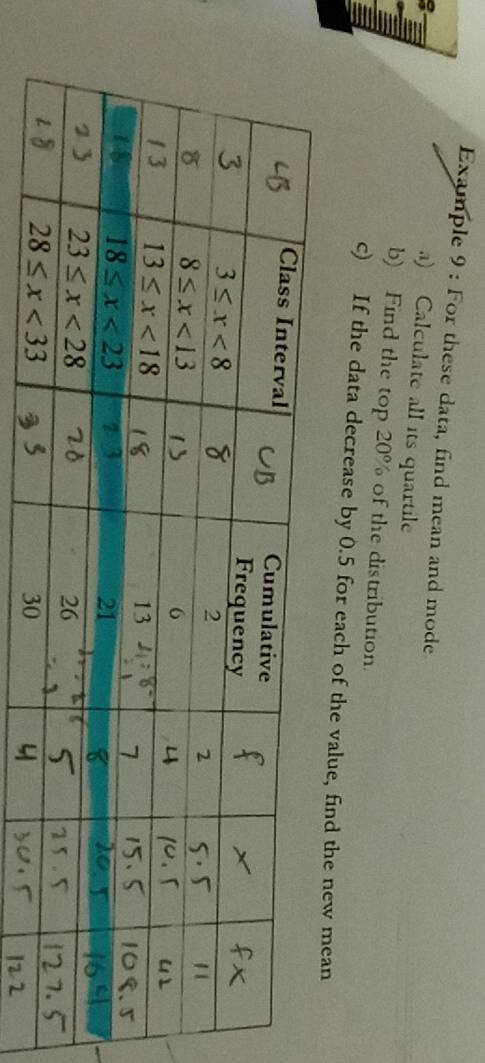 Example 9 : For these data, find mean and mode
a) Calculate all its quartile
b) Find the top 20% of the distribution.
c) If the data decrease by 0.5 for each of the value, find the new mean
LB Class Interval UB Cumulative Frequency f x fx
3 3 ≤ x < 8 8 2 2 5.5 11
8 8 ≤ x < 13 13 6 4 10.5 42
13 13 ≤ x < 18 18 13 7 15.5 108.5
18 18 ≤ x < 23 23 21 8 20.5 164
23 23 ≤ x < 28 28 26 5 25.5 127.5
28 28 ≤ x < 33 33 30 4 30.5 122